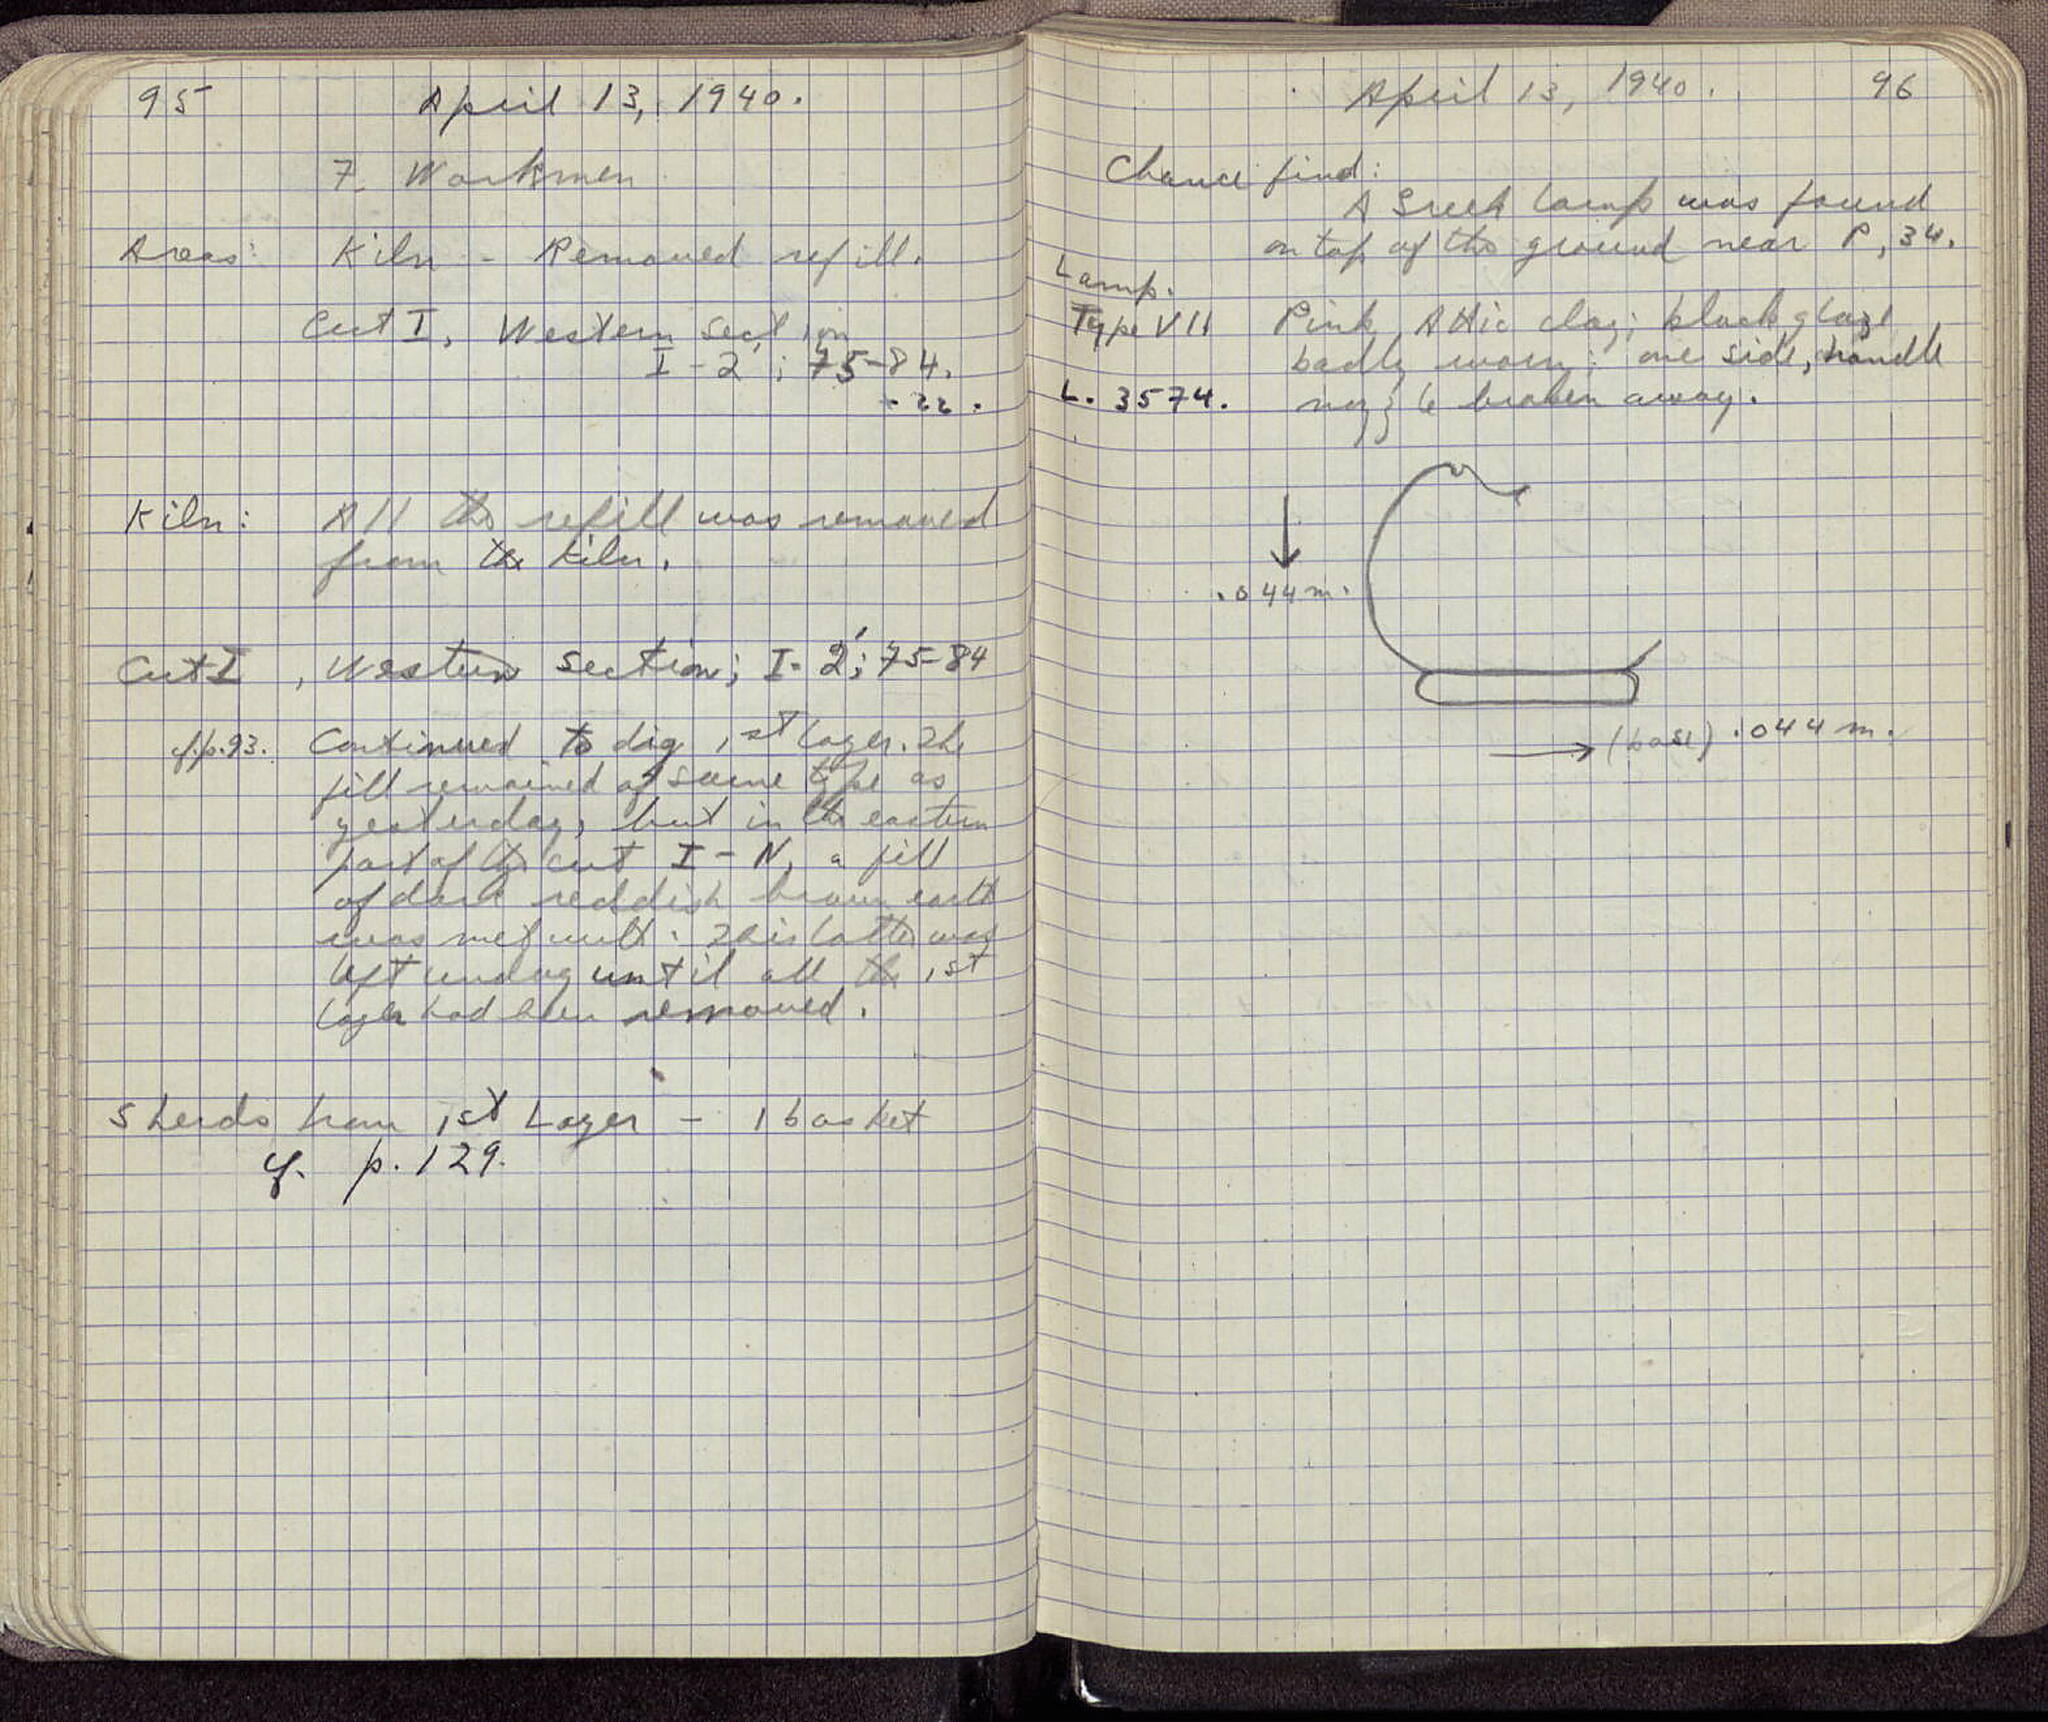 95 April 13, 1940.
7 Workmen
Areas: Kiln - Removed refill.
Cut I, Western section
I-2'; 75-84.
-22.
Kiln: All the refill was removed
from the kiln.
Cut I, Western section; I-2'; 75-84
cf. p. 93. Continued to dig 1st layer. The
fill remained of same type as
yesterday, but in the eastern
part of the cut I-N, a fill
of dark reddish brown earth
was met with. This latter was
left undug until all the 1st
layer had been removed.
Sherds from 1st Layer - 1 basket
cf. p. 129.
April 13, 1940. 96
Chance find:
A Greek lamp was found
on top of the ground near P, 34.
Lamp.
Type VII Pink Attic clay; black glaze
badly worn; one side, handle
L. 3574. broken away.
.044 m.
(base) .044 m.